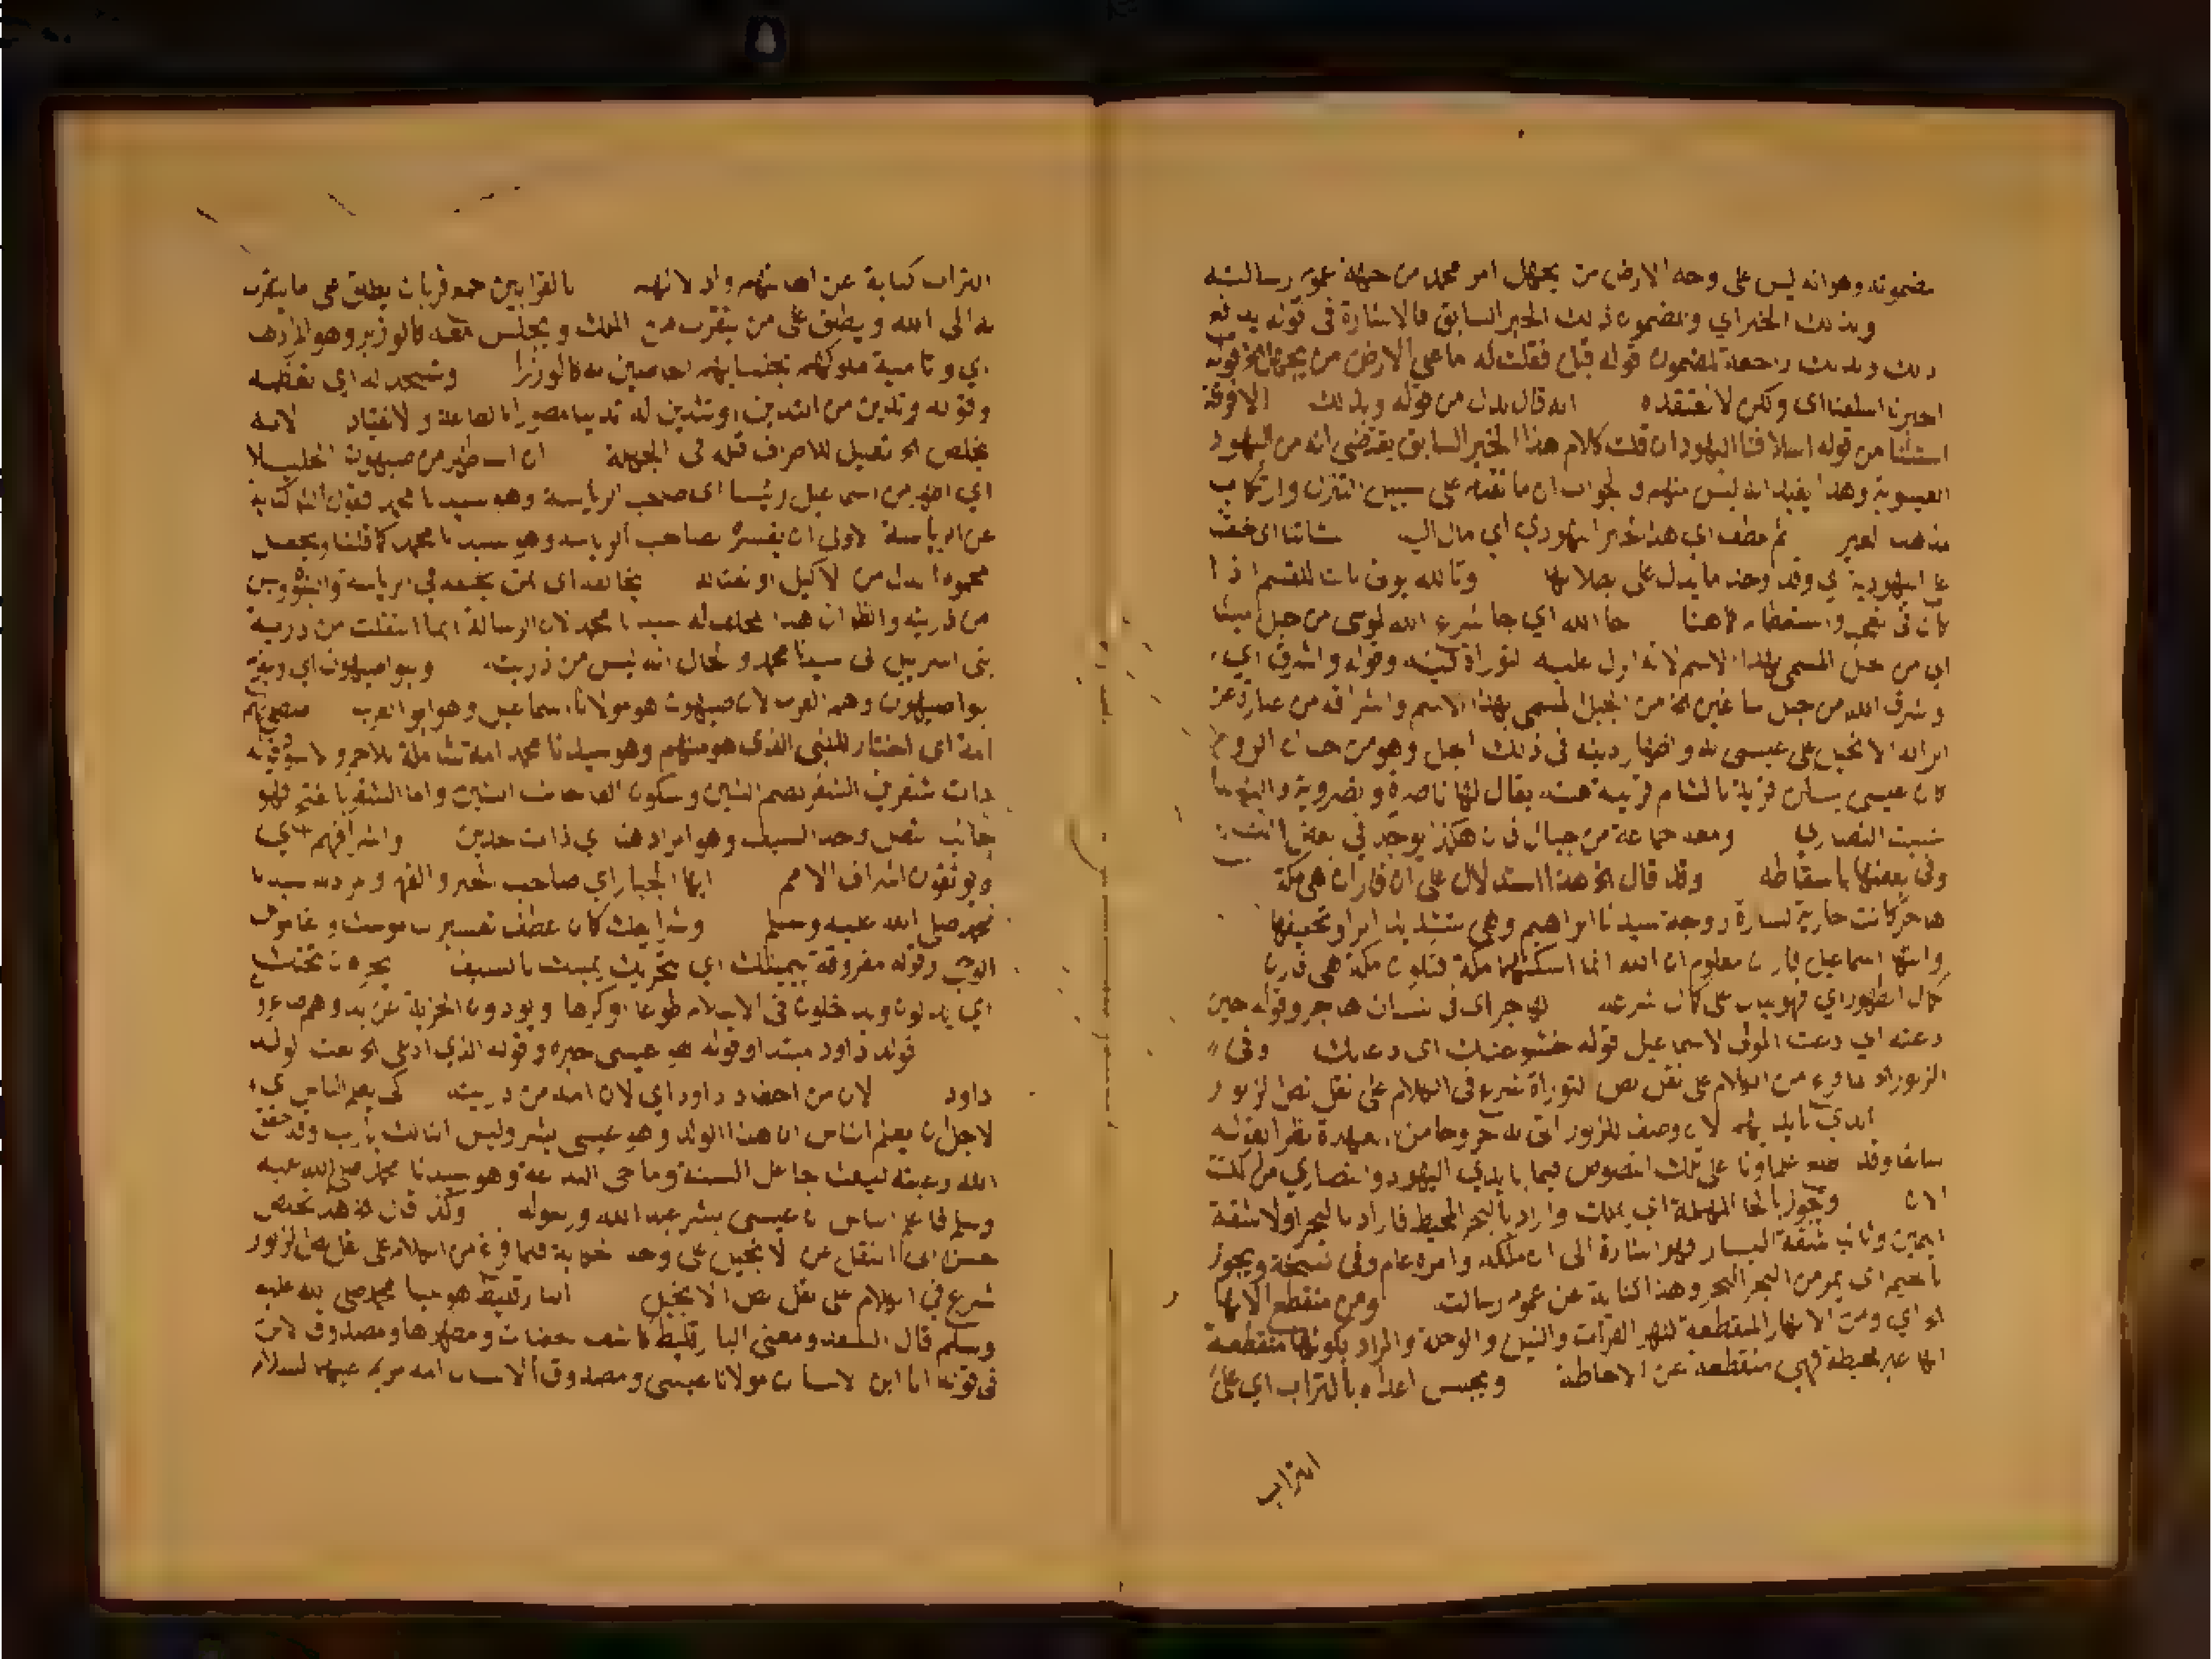 مضمونه وهو انه ليس على وجه الارض من يجهل امر محمد من جهة عموم رسالته
وبذلك الخبر اي ومضمون ذلك الخبر السابق فالاشارة في قوله بذلك
ذلك راجعة لمضمون قوله قبل فقلت له ما على الارض من يجهل
اسلفنا اي ولكن لا نعتقده انه قال بدل من قوله وبذلك الا فرقة
استثنا من قوله اسلافنا اليهود ان قلت كلام هذا الخبر السابق يقتضي انه من اليهود
العيسوية وهذا يفيد انه ليس منهم والجواب ان ما تقدم على سبيل التنزل وارتكاب
مذهب الغير ثم عطف اي هذا الحبر اليهودي اي مال الي شاتنا اي
على اليهودية اي وقد وجد ما يدل على بطلانها وتالله يوتى بالتا للقسم اذا
كان في تعجب واستعظام كما هنا جا الله اي جا شرع الله لموسى من جبل سينا
اي من جبل المسمى بهذا الاسم لانه انزل عليه التوراة فيه وقوله واشرق اي
وشرق الله من جبل ساعين الخ من الجبل المسمى بهذا الاسم واشراقه من عبارة عن
انزاله الانجيل على عيسى به واظهار دينه في ذلك الجبل وهو من جبال الروم
كان عيسى يسكن قرية بالشام قريبة منه يقال لها ناصرة ونصروية واليها
نسبت النصارى ومعه جماعة من جبال فاران هكذا يوجد في بعض النسخ
وفي بعضها باسقاطه وقد قال الخ هذا استدلال على ان فاران هي مكة
هاجر كانت جارية لسارة زوجة سيدنا ابراهيم وهي بتشديد الرا وتخفيفها
وابنها اسماعيل فاران معلوم ان الله انما اسكنهما مكة فتكون مكة هي فاران
كمال الظهور اي فهو بيان على كمال شرعه لهاجر اي في شان هاجر وقوله حين
دعته اي دعت المولى لاسماعيل قوله خشوعك اي دعايك وفي
الزبور لما فرغ من الكلام على نقل نص التوراة شرع في الكلام على نقل نص الزبور
الذي بايديهم لان وصف للزبور اتى به خروجا من العهدة نظرا لقوله
سابقا وقد علماونا على تلك النصوص فيما بايدي اليهود والنصاري من الكتب
الان ويجوز بالحا المهملة اي يملك واراد بالبحر المحيط فاراد بالبحر اولا شقة
اليمين وثانيا شقة اليسار فهو اشارة الى ان ملكه وامره عام وفي نسخة ويجوز
بالجيم اي يمر من البحر الى البحر وهذا كناية عن عموم رسالته ومن منقطع الانهار
الخ اي ومن الانهار المنقطعة كنهر الفرات والنيل والدجلة والمراد بكونها منقطعة
انها غير محيطة فهي منقطعة عن الاحاطة ويجلس اعداوه بالتراب اي على
التراب
التراب كناية عن اهانتهم واذلالهم بالقرابين جمع قربان يطلق على ما يتقرب
به الى الله ويطلق على من يتقرب من الملك ويجلس معه كالوزير وهو المراد هنا
اي وتاتيه ملوكهم بجلسايهم الخاصين به كالوزرا وتسجد له اي تعظمه
وقوله وتدين من التدين اي وتتدين له تدينا مصورا بالطاعة والانقياد لانه
يخلص الخ تعليل للاوصاف قبله في الجملة ان الله اظهر من صيهون اكليلا
اي اظهر من اسماعيل رئيسا اي صاحب الرياسة وهو سيدنا محمد فقوله اكليلا كناية
عن الرياسة الاولى ان يفسره بصاحب الرياسة وهو سيدنا محمد كما قلنا ويجعل
محمودا بدل من الاكليل او نعت له
من ذريته والظاهر ان هذا مخالف له سيدنا محمد لان الرسالة انما انتقلت من ذرية
بني اسرييل الى سيدنا محمد والحال انه ليس من ذريته وبنو صيهون اي
بنو صيهون وهم العرب لان صيهون هو مولانا اسماعيل وهو ابو العرب
امة اي اختار للنبي الذي هو منهم وهو سيدنا محمد امة شاملة للاحر
ذات شفرين الشفر بضم الشين وسكون الفا جانب الشي واما الشفر بالفتح فهو
جانب نصل وحد السيف وهو المراد هنا اي ذات حدين واشرافهم اي
ويوثقون اشراف الامم ايها الجبار اي صاحب الجبر والقهر والمراد به سيدنا
محمد صلى الله عليه وسلم وشرايعك كان عطف تفسير ناموسك والناموس
الوحي وقوله مقرونة بهيبتك اي بتحريك يمينك بالسيف يخرون تحتك
اي يذلون ويدخلون في الاسلام طوعا او كرها ويودون الجزية عن يد وهم صاغرون
قوله داود مبتدا وقوله هو عيسى خبره وقوله الذي ادعى الخ نعت لولد
داود لان من احفاد داود اي لان امه من ذريته كي يعلم الناس اي
لاجل ان يعلم الناس ان هذا الولد وهو عيسى بشر وليس الثالث بارب وقد حقق
الله رغبته ليبعث جاعل السنة وماحي البدعة وهو سيدنا محمد صلى الله عليه
وسلم فاعلم الناس ان عيسى بشر عبد الله ورسوله وكذا قال الخ هذا تخلص
حسن اي انتقل من الانجيل على وجه فلما فرغ من الكلام على نقل نص الزبور
شرع في الكلام على نقل نص الانجيل البارقليط هو سيدنا محمد صلى الله عليه
وسلم قال السعد ومعنى البارقليط كاشف الخفيات ومظهرها ومصدوق الابن
في قوله انا ابن الانسان مولانا عيسى ومصدوق الانسان امه مريم عليهما السلام